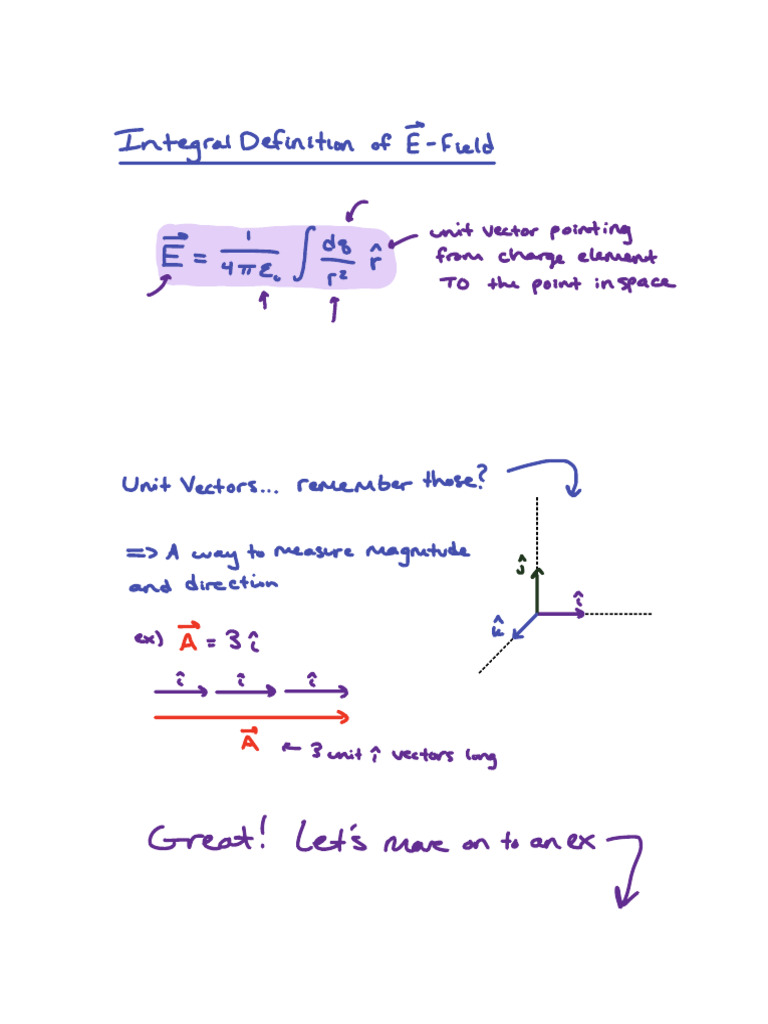 Integral Definition of E⃗-Field
E⃗ = 1/(4πε₀) ∫ dq/r² r̂
unit vector pointing
from charge element
TO the point in space
Unit Vectors... remember those?
=> A way to measure magnitude
and direction
ĵ
î
k̂
ex) A⃗ = 3 î
î î î
A⃗ ← 3 unit î vectors long
Great! Let's move on to an ex